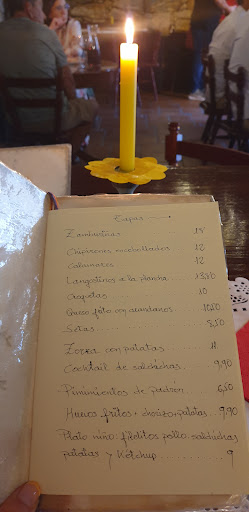 Tapas
Zamburiñas 18
Chipirones encebollados 12
Calamares 12
Langostinos a la plancha 13,50
Croquetas 10
Queso frito con arandanos 10,50
Setas 8,50
Zorza con patatas 11
Cocktail de salchichas 9,90
Pimimientos de padrón 6,50
Huevos fritos, chorizo, patatas 9,90
Plato niño: filetitos pollo salchichas
patatas y Ketchup 9